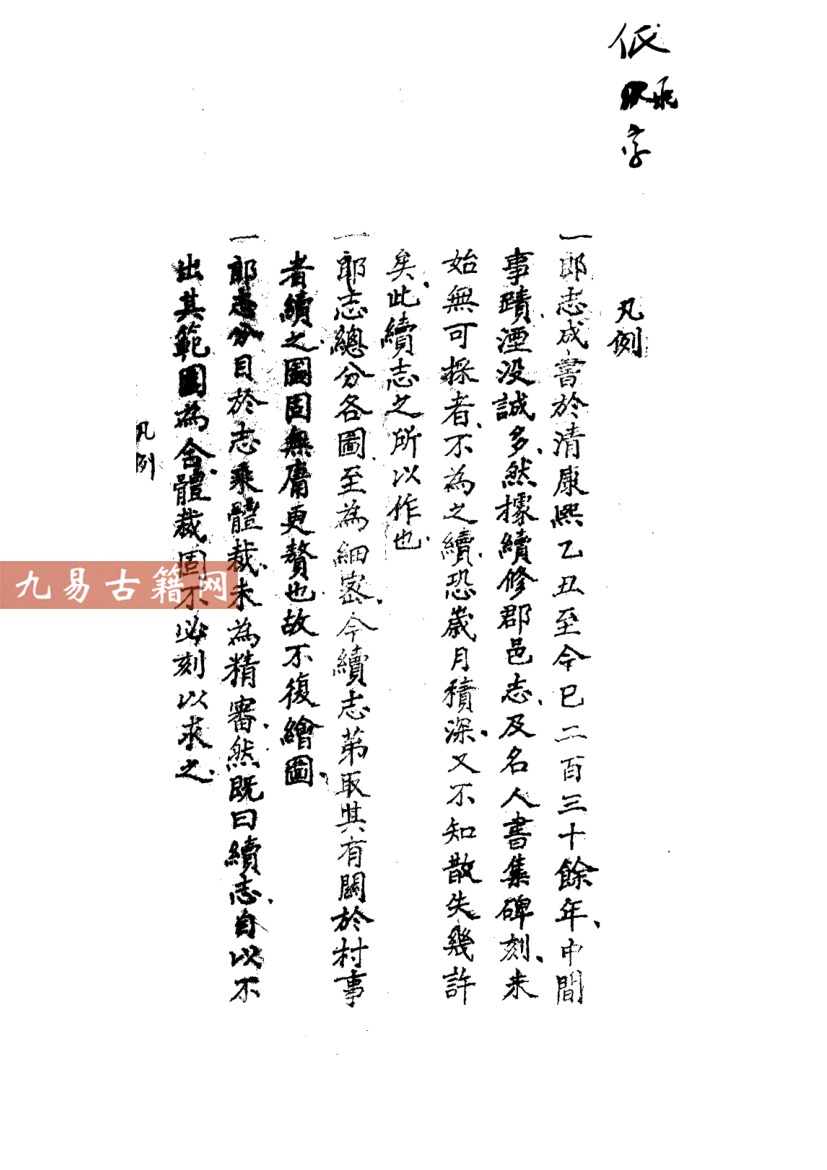 低
字
凡例
一郎志成書於清康熙乙丑至今已二百三十餘年、中間
事蹟湮没誠多、然據續修郡邑志、及名人書集碑刻、未
始無可採者、不為之續、恐歲月積深、又不知散失幾許
矣、此續志之所以作也、
一郎志總分各圖、至為細密、今續志第取其有關於村事
者續之圖固無庸更贅也故不復繪圖、
一郎志分目於志乘體裁、未為精審、然既曰續志、自以不
出其範圍為合、體裁固不必刻以求之、
凡例
九易古籍网